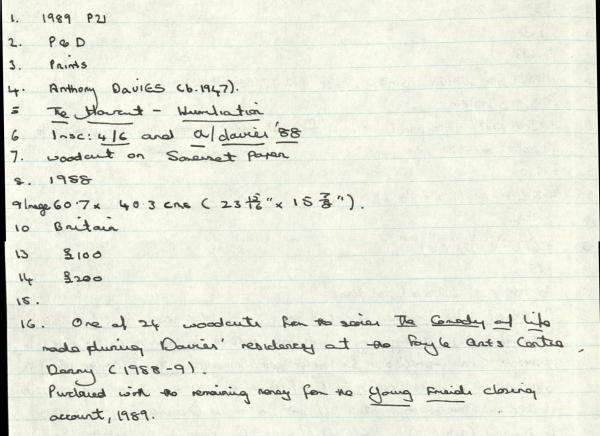 1. 1989 P21
2. P&D
3. Prints
4. Anthony DAVIES (b.1947).
5 The Havent - Humiliation
6 Insc: 4/6 and a/davies '88
7. woodcut on Somerset Paper
8. 1988
9 Image 60.7 x 40.3 cms ( 23 15/16" x 15 7/8" ).
10 Britain
13 £100
14 £200
15.
16. One of 24 woodcuts from the series The Comedy of Life
made during Davies' residency at the Foyle Arts Centre,
Derry (1988-9).
Purchased with the remaining money from the Young Friends closing
account, 1989.